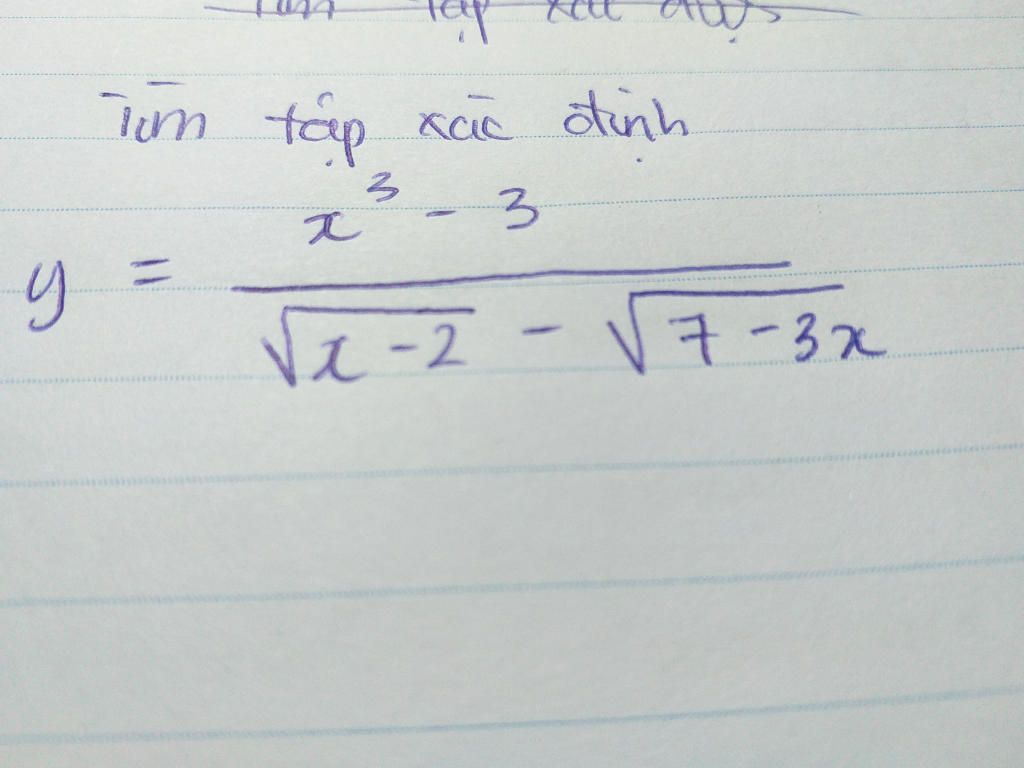 Tìm tập xác
Tìm tập xác định
y = \frac{x^3 - 3}{\sqrt{x-2} - \sqrt{7-3x}}